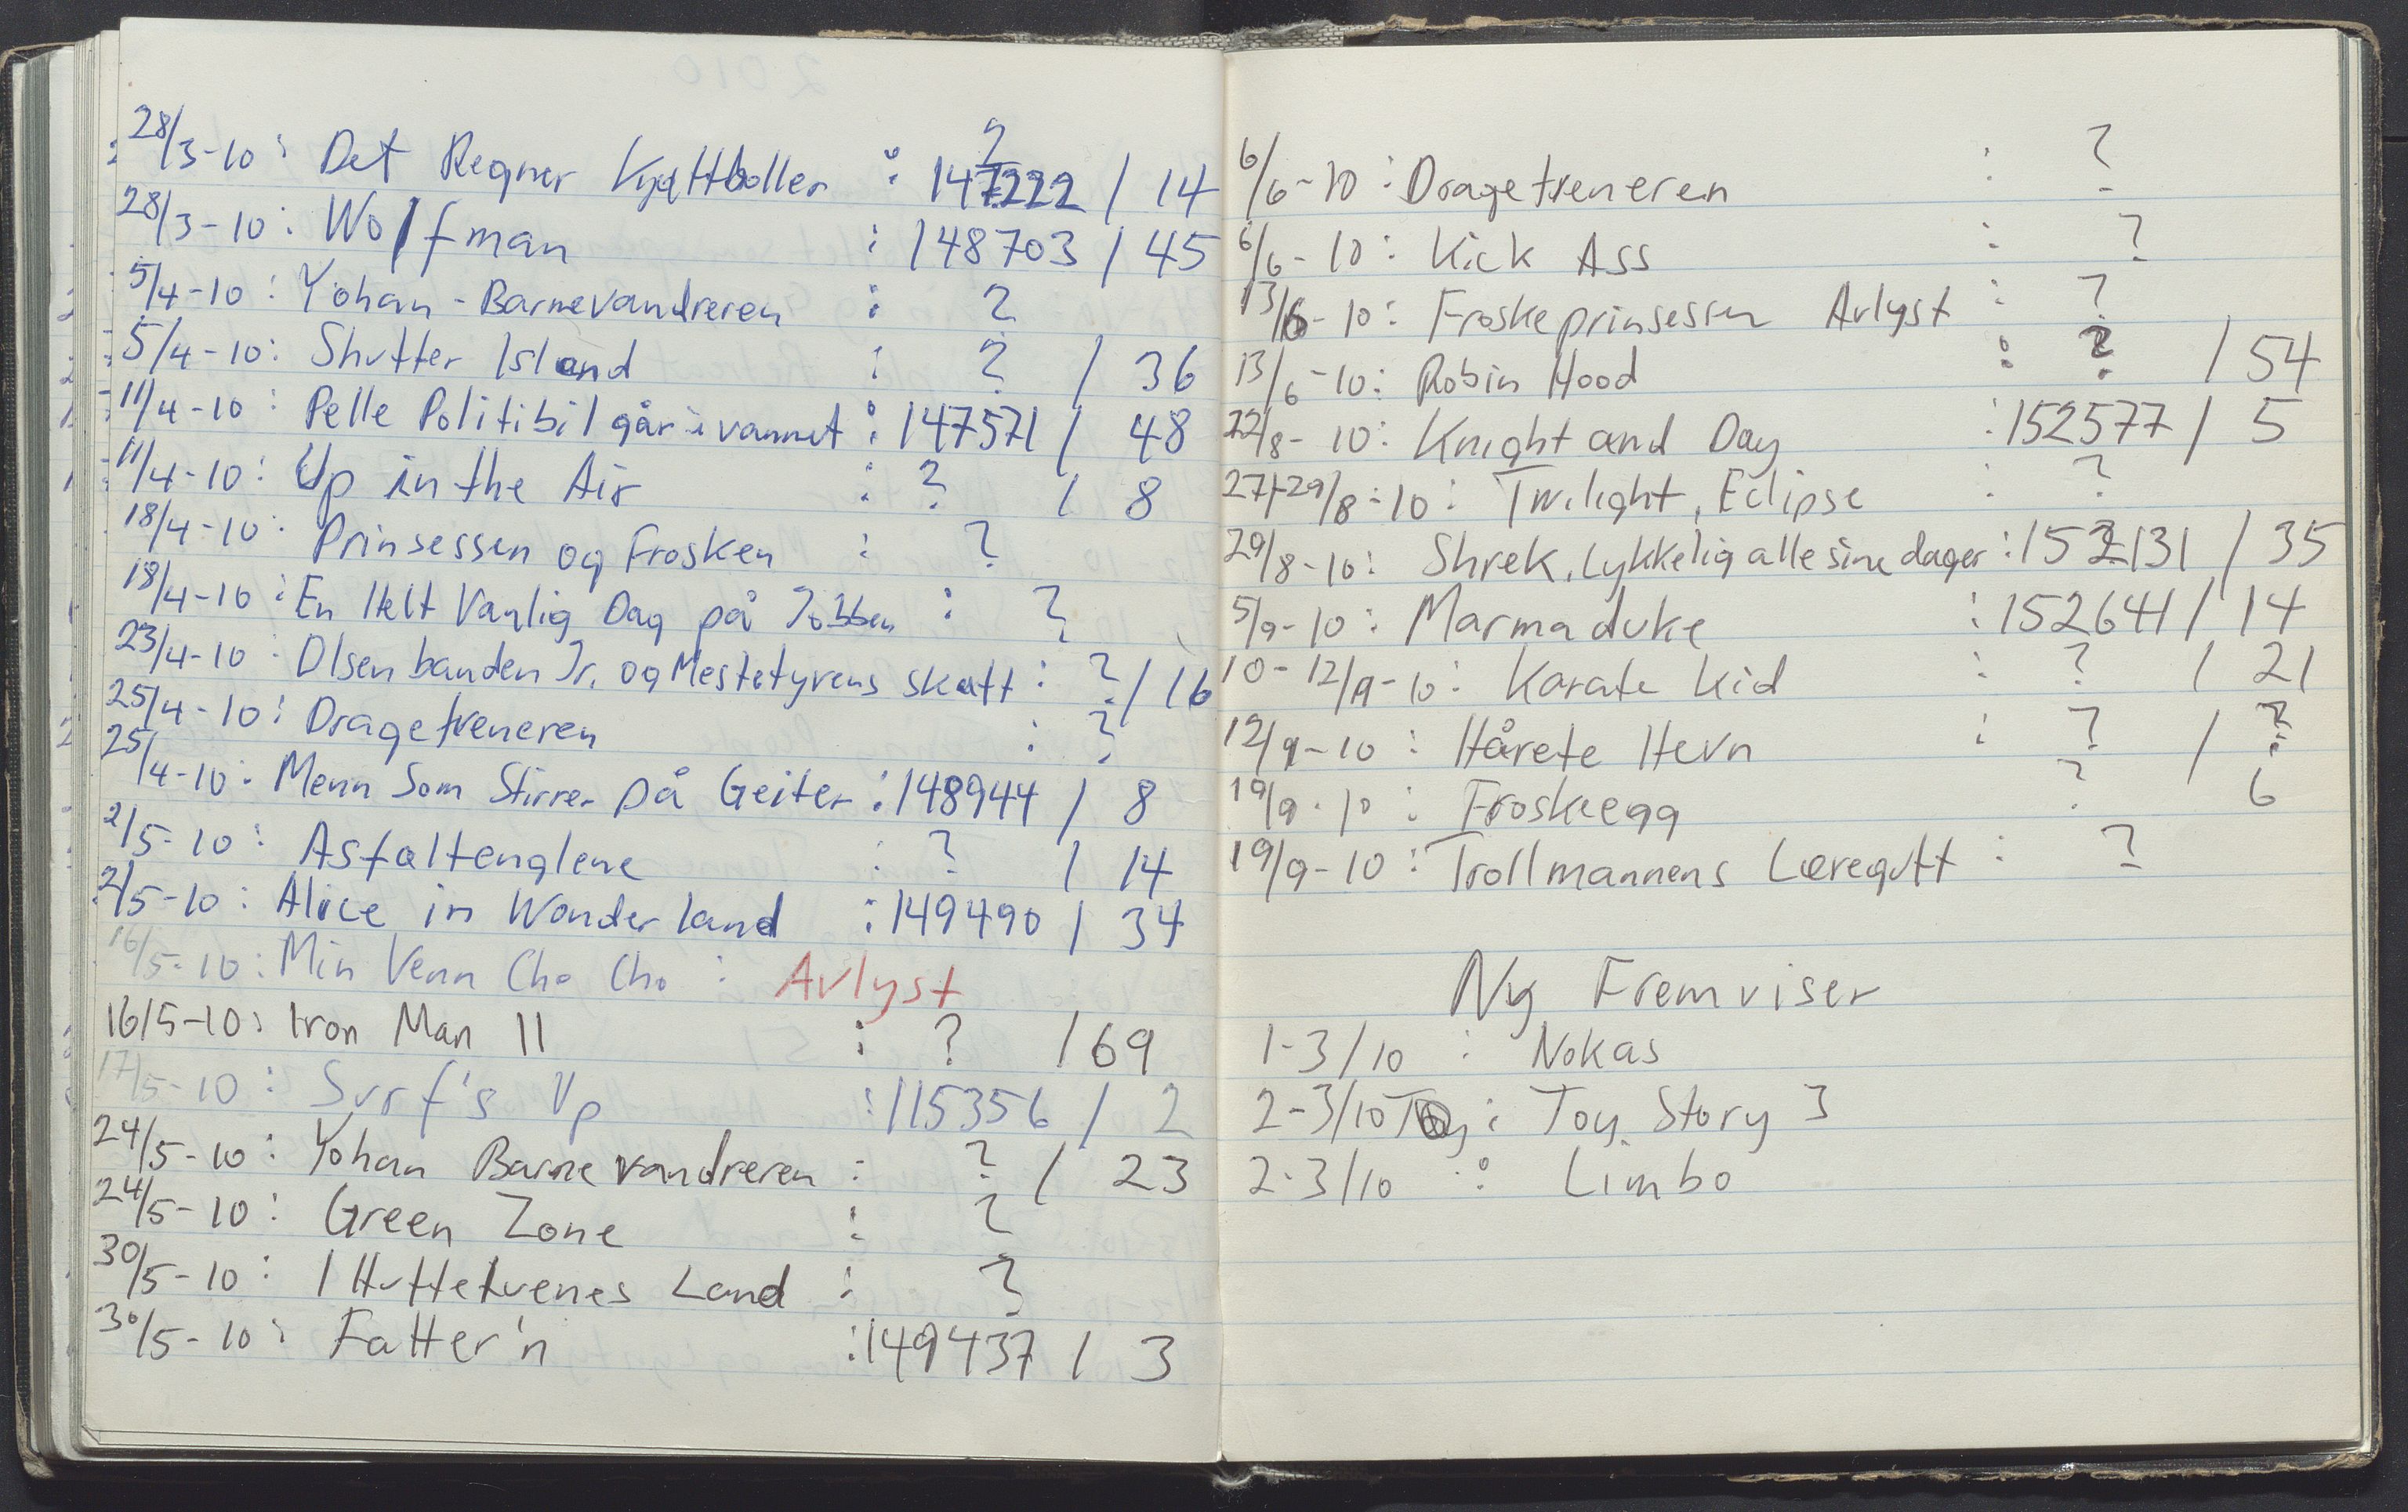 28/3-10: Det Regner Kjøttboller : 147222 / 14
28/3-10: Wolfman : 148703 / 45
5/4-10: Yohan - Barnevandreren : ?
5/4-10: Shutter Island : ? / 36
11/4-10: Pelle Politibil går i vannet : 147571 / 48
11/4-10: Up in the Air : ? / 8
18/4-10: Prinsessen og Frosken : ?
18/4-10: En Helt Vanlig Dag på Jobben : ?
23/4-10: Olsenbanden Jr. og Mestetyvens skatt : ? / 16
25/4-10: Dragetreneren : ?
25/4-10: Menn Som Stirrer på Geiter : 148944 / 8
2/5-10: Asfaltenglene : ? / 14
2/5-10: Alice in Wonderland : 149490 / 34
16/5-10: Min Venn Cho Cho : Avlyst
16/5-10: Iron Man II : ? / 69
17/5-10: Surf's Up : 115356 / 2
24/5-10: Yohan Barnevandreren : ? / 23
24/5-10: Green Zone : ?
30/5-10: I Huttetuenes Land : ?
30/5-10: Fatter'n : 149437 / 3
6/6-10: Dragetreneren : ?
6/6-10: Kick Ass : ?
13/6-10: Froskeprinsessen Avlyst : ?
13/6-10: Robin Hood : ? / 54
22/8-10: Knight and Day : 152577 / 5
27+29/8-10: Twilight, Eclipse : ?
29/8-10: Shrek, Lykkelig alle sine dager : 152131 / 35
5/9-10: Marmaduke : 152641 / 14
10-12/9-10: Karate Kid : ? / 21
12/9-10: Hårete Hevn : ? / ?
19/9-10: Froskeegg ? 6
19/9-10: Trollmannens Læregutt : ?
Ny Fremviser
1-3/10 : Nokas
2-3/10 Toy : Toy Story 3
2-3/10 : Limbo